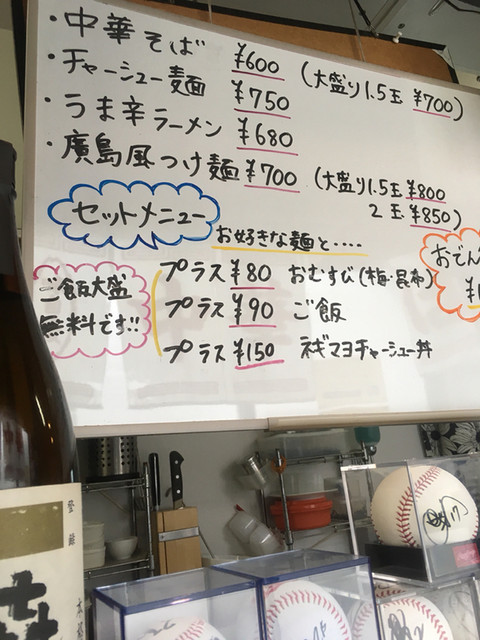 ・中華そば ¥600 (大盛り1.5玉 ¥700)
・チャーシュー麺 ¥750
・うま辛ラーメン ¥680
・廣島風つけ麺 ¥700 (大盛り1.5玉 ¥800
2玉 ¥850)
セットメニュー
お好きな麺と‥‥
おでん
ご飯大盛
無料です!!
プラス ¥80 おむすび(梅・昆布)
プラス ¥90 ご飯
プラス ¥150 ネギマヨチャーシュー丼
登録